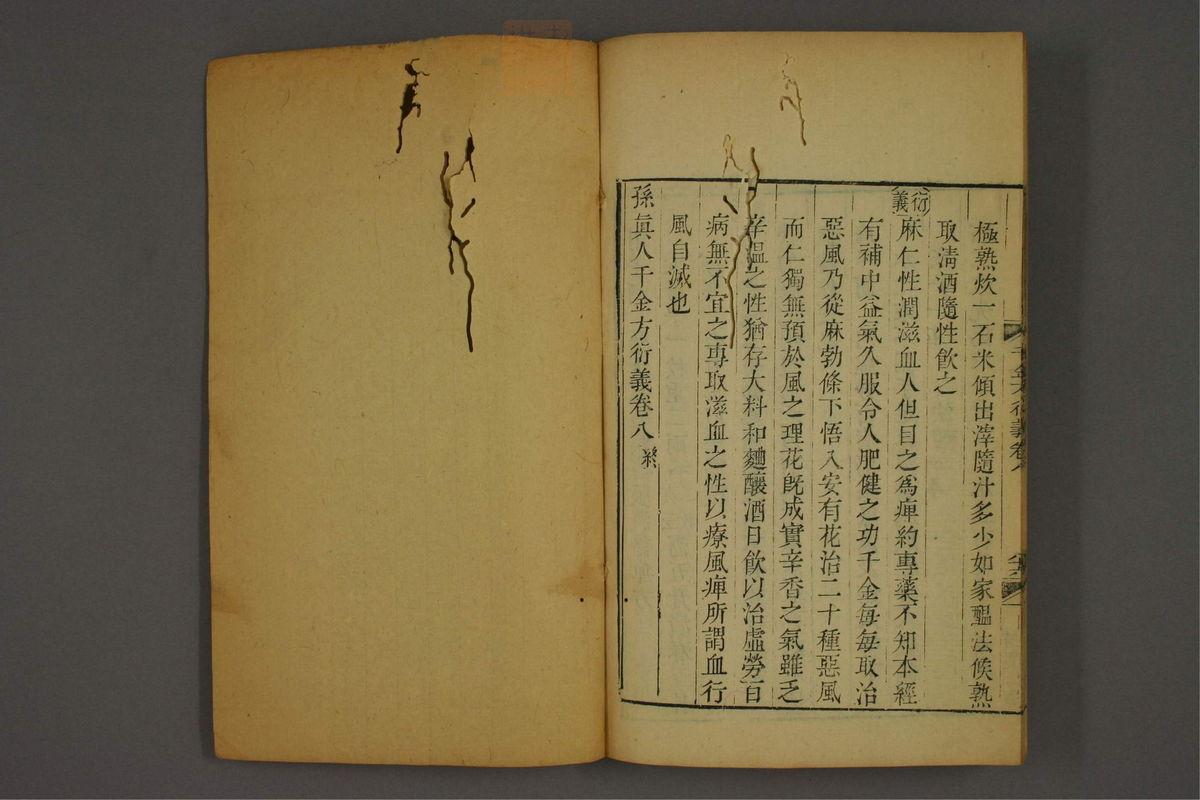 極熟炊一石米傾出滓隨汁多少如家醖法候熟
取淸酒隨性飲之
衍義
麻仁性潤滋血人但目之爲痺約專藥不知本經
有補中益氣久服令人肥健之功千金每每取治
惡風乃從麻勃條下悟入安有花治二十種惡風
而仁獨無預於風之理花旣成實辛香之氣雖乏
辛溫之性猶存大料和麯釀酒日飲以治虛勞百
病無不宜之專取滋血之性以療風痺所謂血行
風自滅也
孫眞人千金方衍義卷八 終
千金方衍義卷八